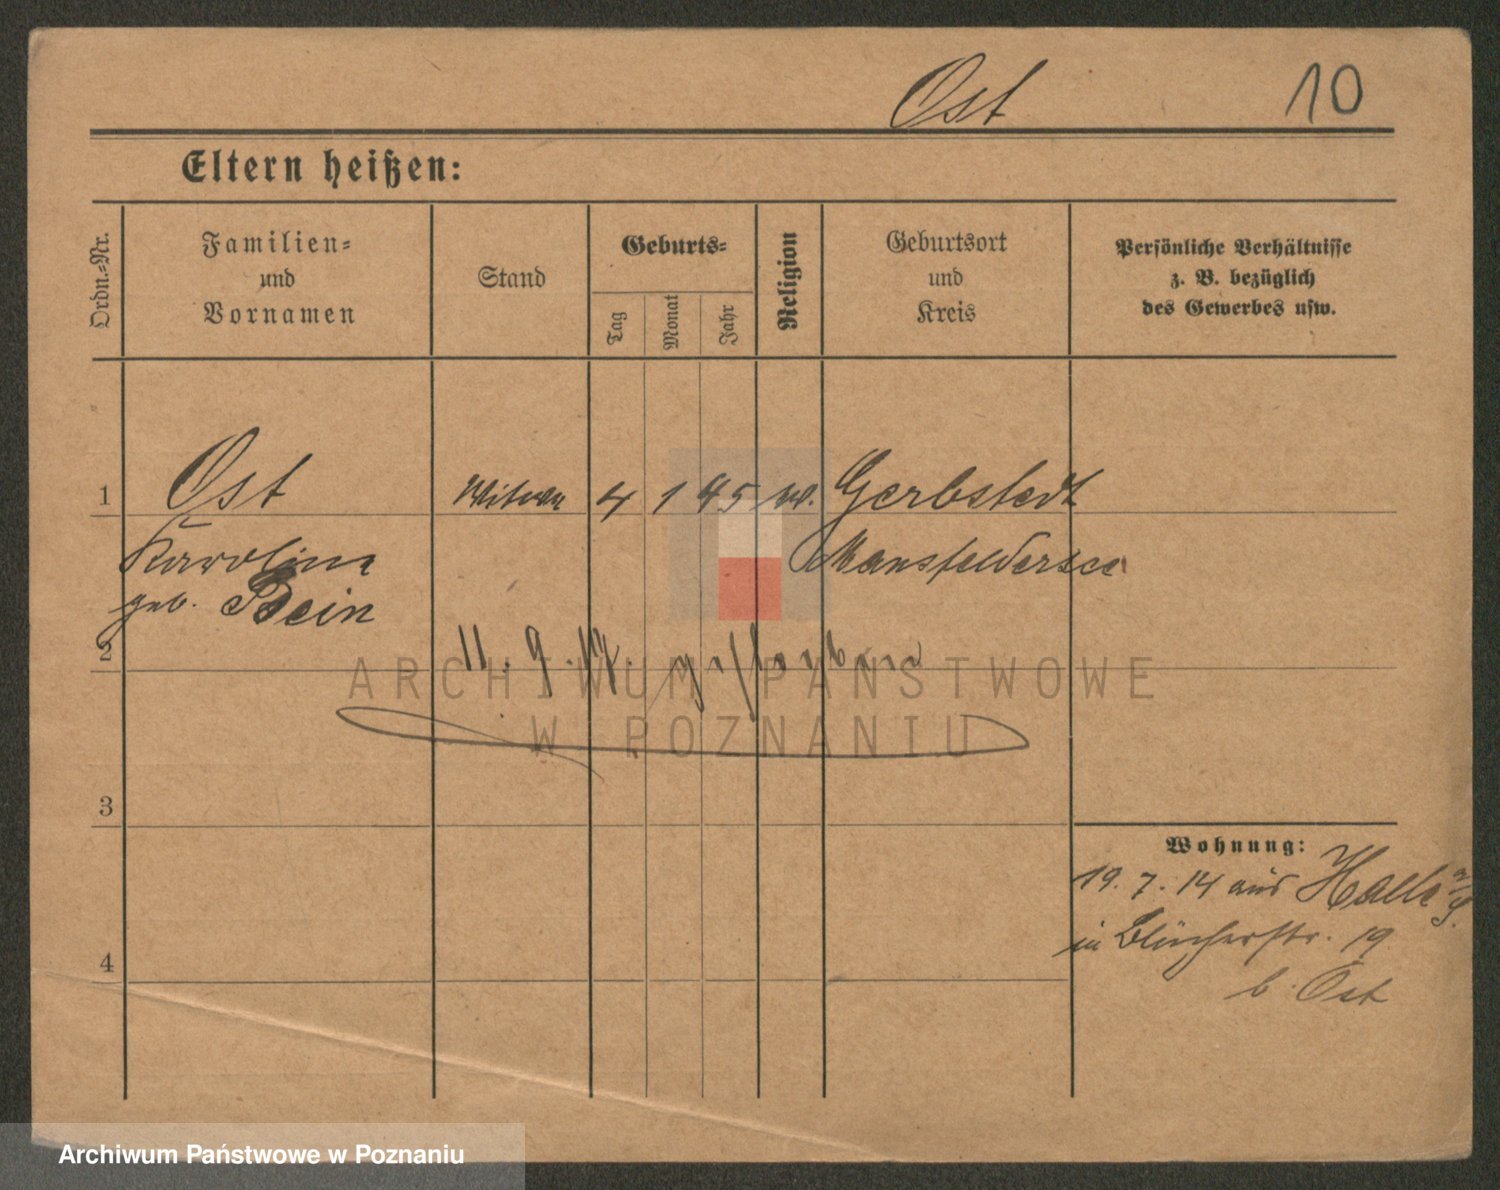 Ost 10
Eltern heißen:
Ordn.-Nr.
Familien-
und
Vornamen
Stand
Geburts-
Tag
Monat
Jahr
Religion
Geburtsort
und
Kreis
Persönliche Verhältnisse
z. B. bezüglich
des Gewerbes usw.
1 Ost Witwe 4 1 45 Gerbstedt
Karoline Mansfeldersee
geb. Bein
2 11. 9. 17. gestorben
3
4
Wohnung:
19. 7. 14 aus Halle a/S.
in Blücherstr. 19
b. Ost
ARCHIWUM PAŃSTWOWE
W POZNANIU
Archiwum Państwowe w Poznaniu